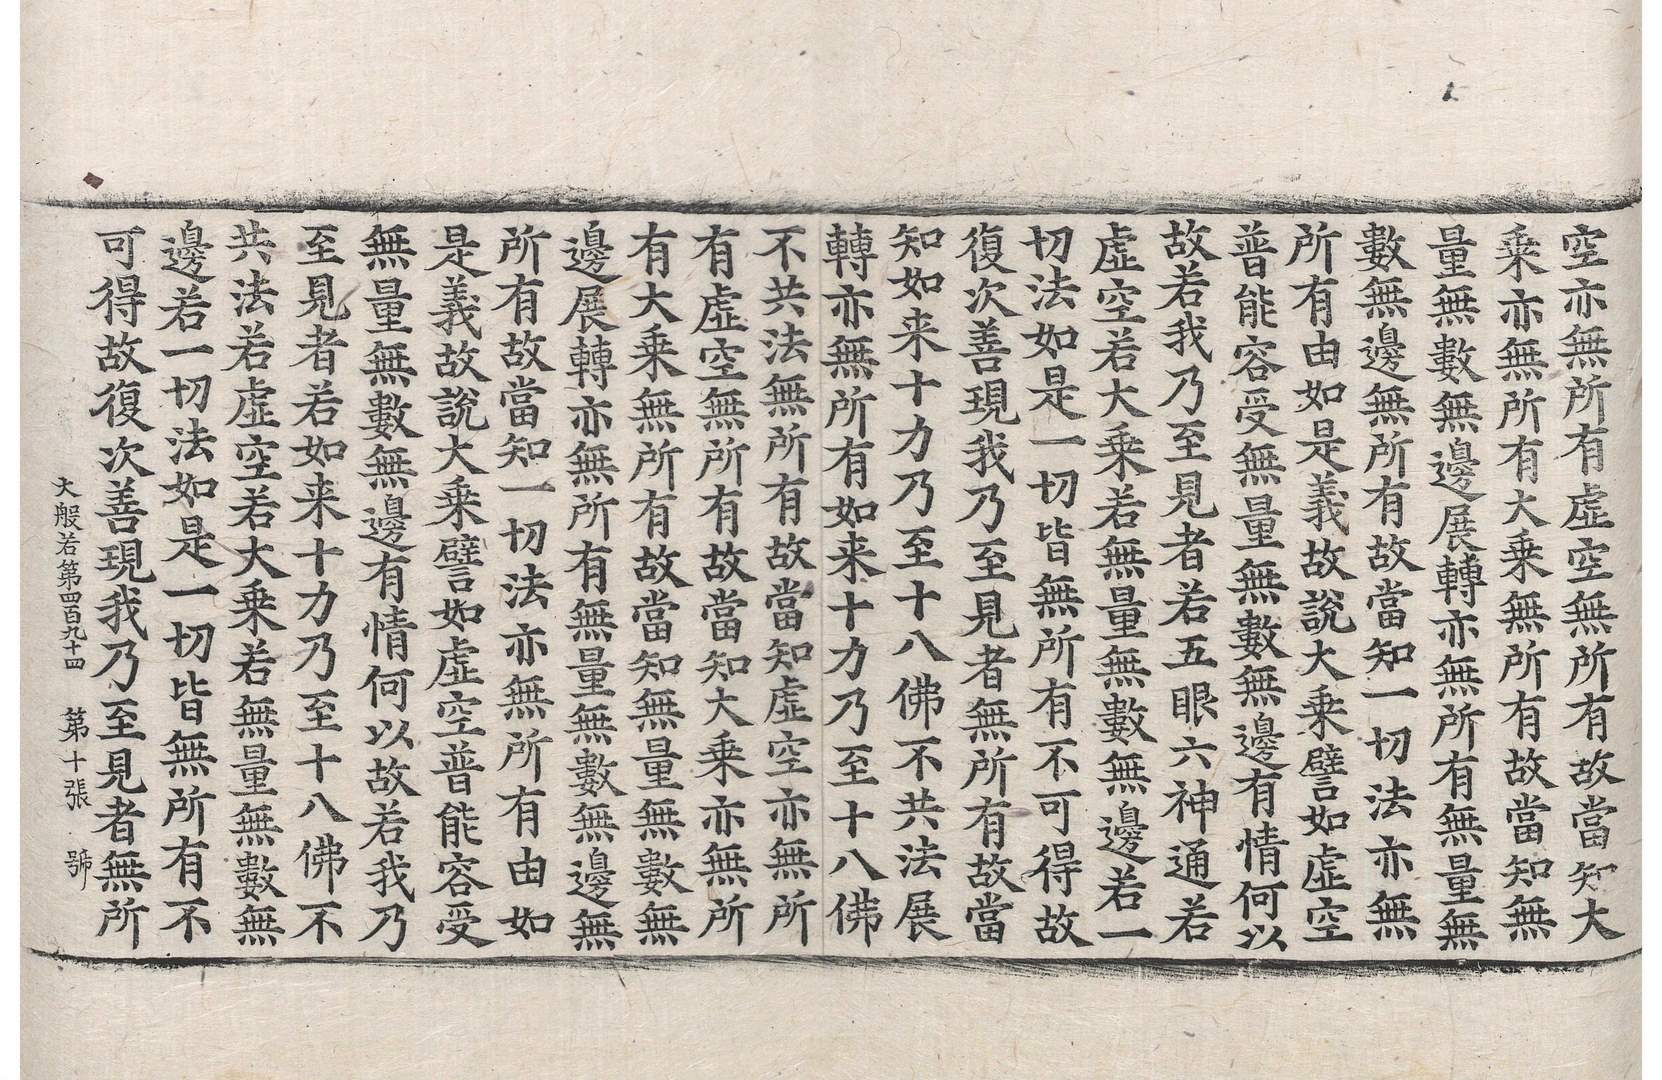 空亦無所有虛空無所有故當知大
乗亦無所有大乗無所有故當知無
量無數無邊展轉亦無所有無量無
數無邊無所有故當知一切法亦無
所有由如是義故說大乗譬如虛空
普能容受無量無數無邊有情何以
故若我乃至見者若五眼六神通若
虛空若大乗若無量無數無邊若一
切法如是一切皆無所有不可得故
復次善現我乃至見者無所有故當
知如来十力乃至十八佛不共法展
轉亦無所有如来十力乃至十八佛
不共法無所有故當知虛空亦無所
有虛空無所有故當知大乗亦無所
有大乗無所有故當知無量無數無
邊展轉亦無所有無量無數無邊無
所有故當知一切法亦無所有由如
是義故說大乗譬如虛空普能容受
無量無數無邊有情何以故若我乃
至見者若如来十力乃至十八佛不
共法若虛空若大乗若無量無數無
邊若一切法如是一切皆無所有不
可得故復次善現我乃至見者無所
大般若第四百九十四 第十張 號